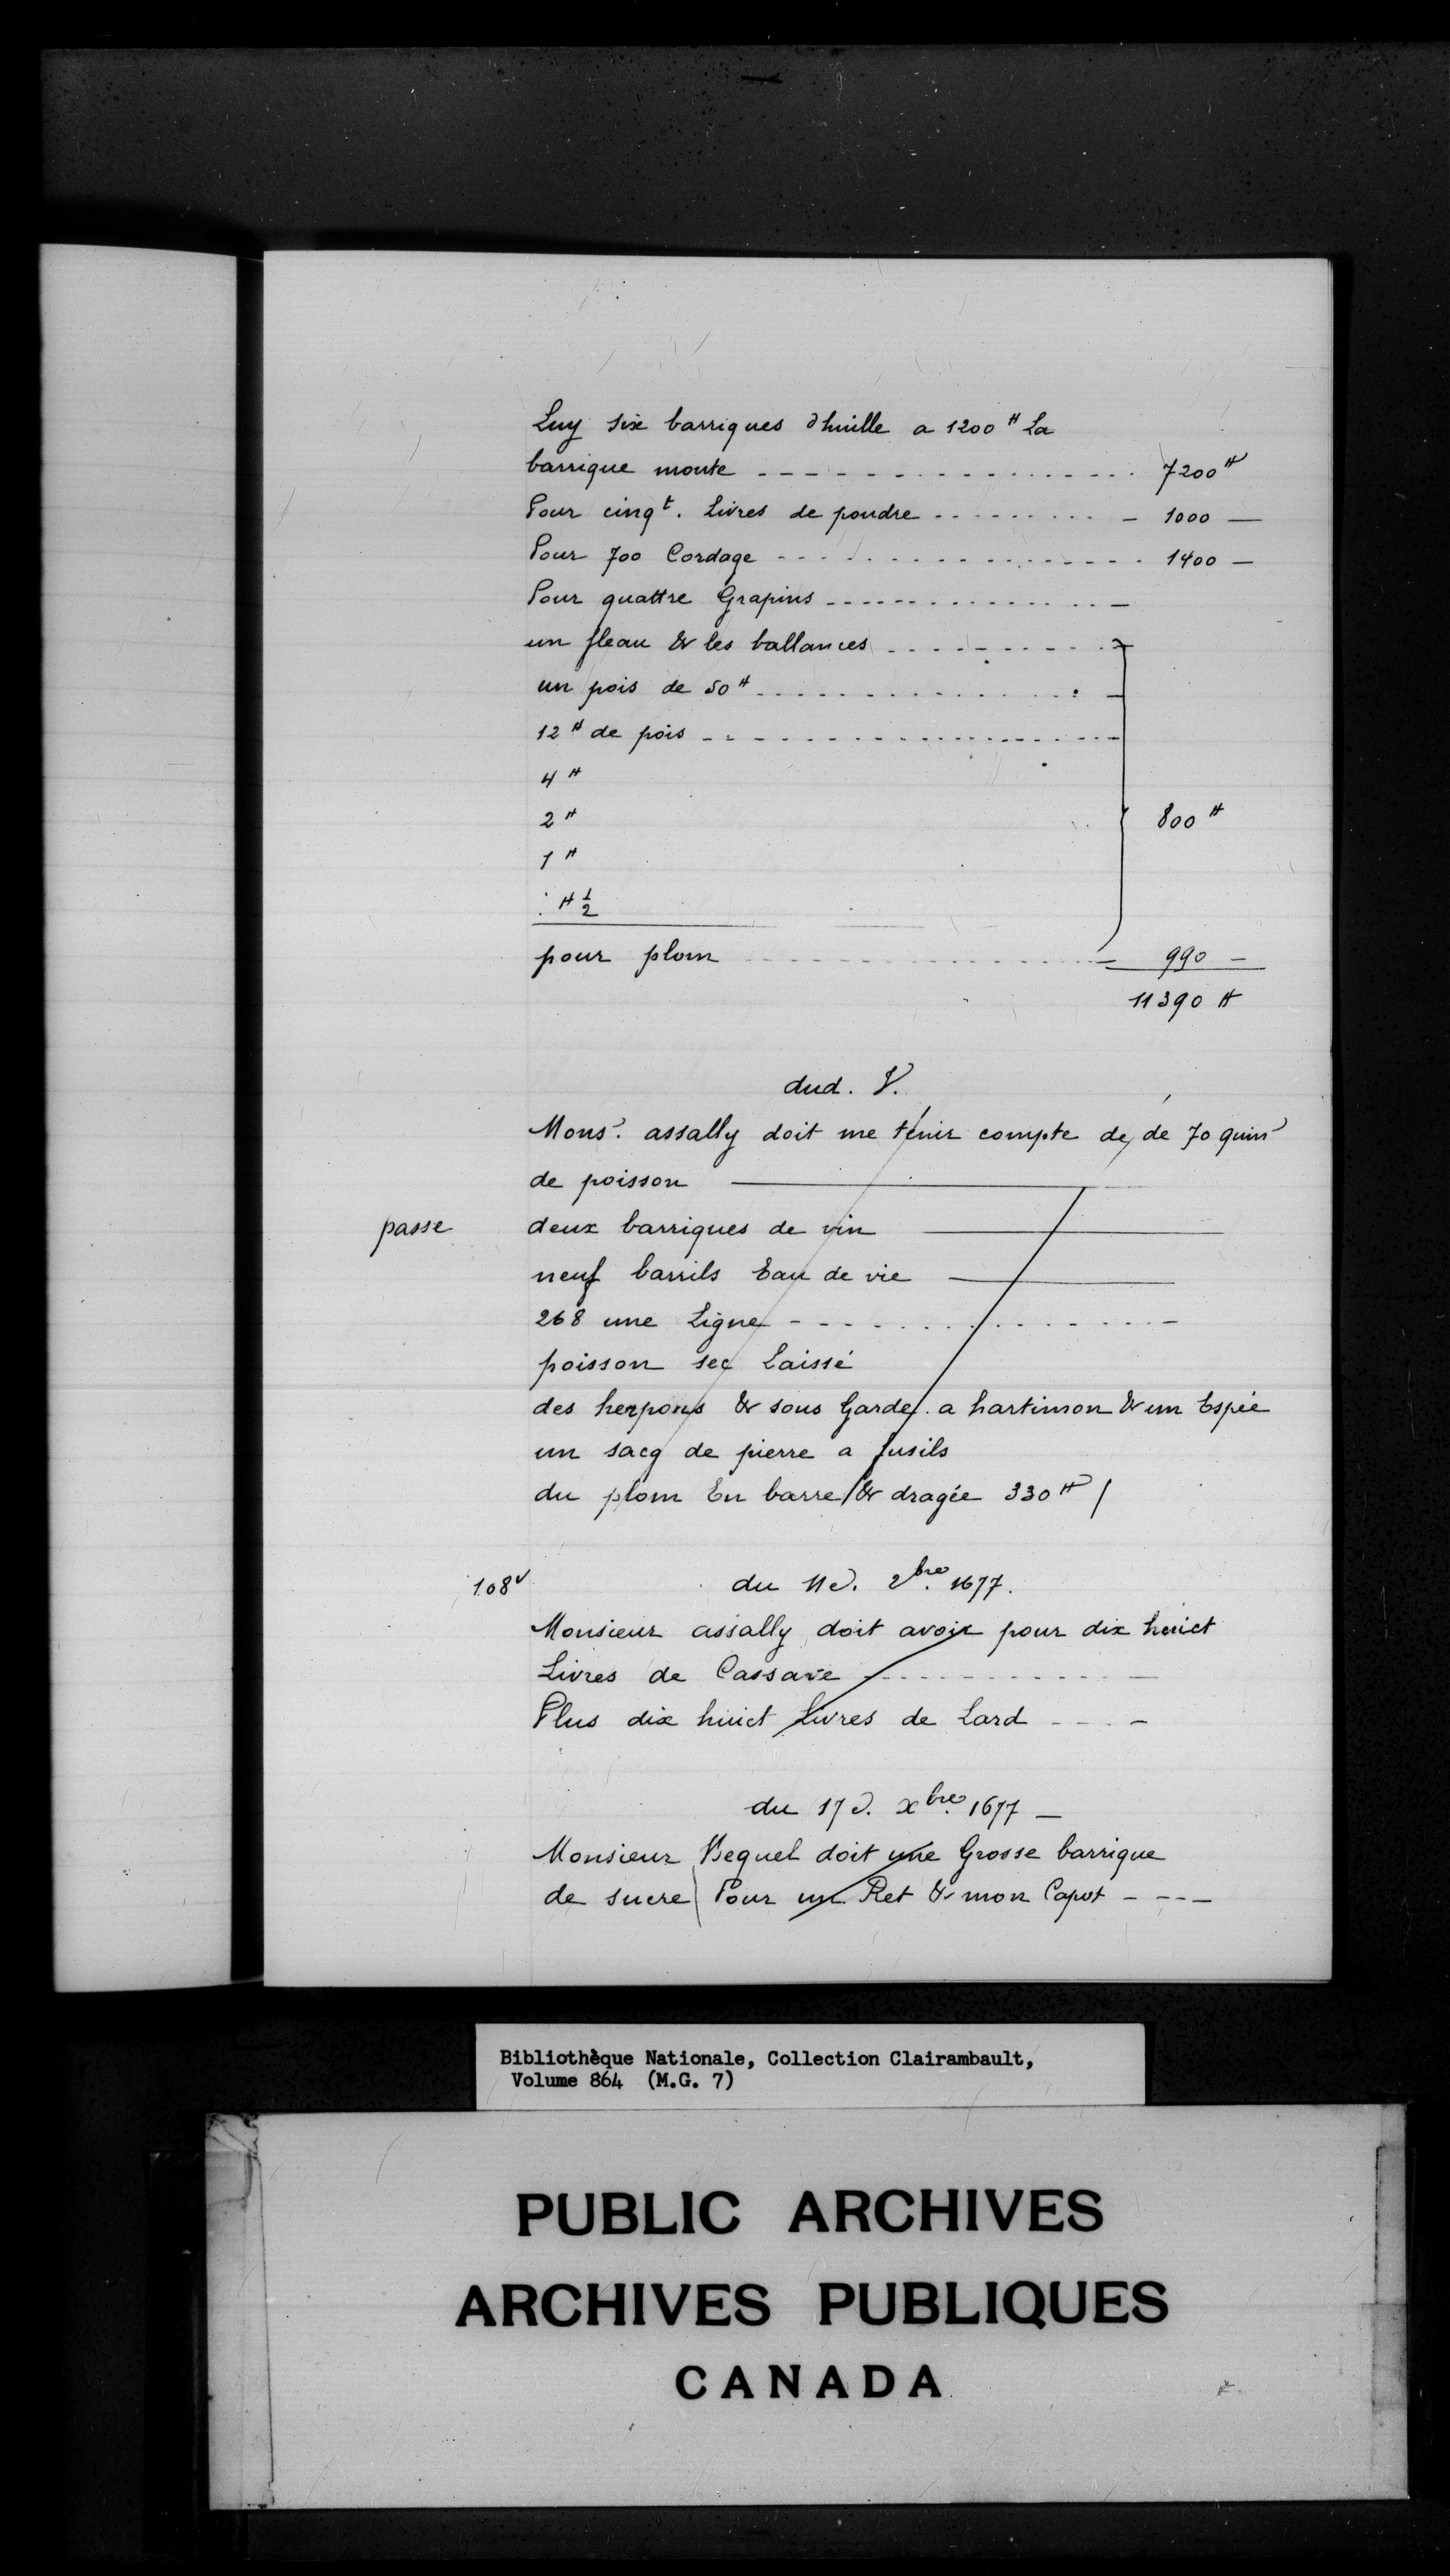 Luy six barriques d'huille a 1200 ₶ La
barrique monte - - - - - - - - 7200 ₶
Pour cinq t. Livres de poudre - - - - - - - - 1000 —
Pour 700 Cordage - - - - - - - - 1400 —
Pour quattre Grapins - - - - - - - -
un fleau & les ballances - - - - - - - -
un pois de 50 ₶ - - - - - - - -
12 ₶ de pois - - - - - - - -
4 ₶
2 ₶ 800 ₶
1 ₶
: ₶ 1/2
pour plom - - - - - - - - 990 —
11390 ₶
dud. V.
Mons r. assally doit me tenir compte de, de 70 quin
de poisson ———
passe deux barriques de vin ———
neuf barrils Eau de vie ———
268 une Ligne - - - - - - - -
poisson sec Laissé
des herpons & sous Garde. a hartimon & un Espée
un sacq de pierre a fusils
du plom En barre / & dragée 330 ₶ /
108 v du 11 d. 2 bre. 1677.
Monsieur assally doit avoir pour dix huict
Livres de Cassave - - - - - - - -
Plus dix huict Livres de Lard - - - -
du 17 d. x bre. 1677 —
Monsieur Bequel doit une Grosse barrique
de sucre / Pour un Ret & mon Capot - - - -
Bibliothèque Nationale, Collection Clairambault,
Volume 864 (M.G. 7)
PUBLIC ARCHIVES
ARCHIVES PUBLIQUES
CANADA